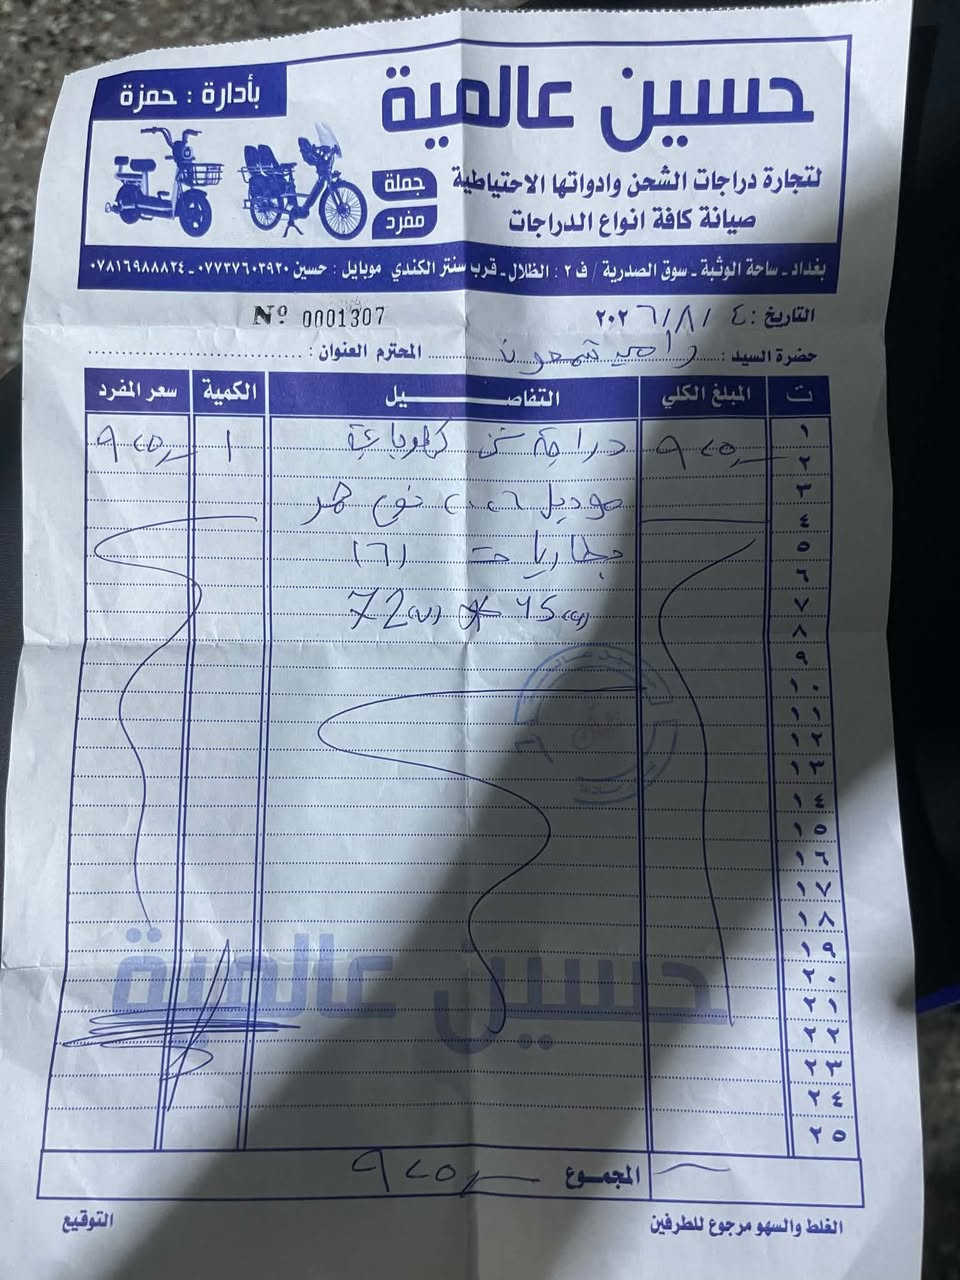 حسين عالمية
بأدارة : حمزة
لتجارة دراجات الشحن وادواتها الاحتياطية
جملة
مفرد
صيانة كافة انواع الدراجات
بغداد ـ ساحة الوثبة ـ سوق الصدرية / ف ٢ : الظلال ـ قرب سنتر الكندي موبايل : حسين ٠٧٧٣٧٦٠٣٩٢٠ ـ ٠٧٨١٦٩٨٨٨٢٤
التاريخ : ٤ / ٨ / ٢٠٢٦
Nº 0001307
حضرة السيد : رامي شمعون المحترم العنوان :
ت المبلغ الكلي التفاصيل الكمية سعر المفرد
١ ٩٢٥ دراجة شحن كهربائية ١ ٩٢٥
٢
٣ موديل
٤
٥ بطاريات (٦)
٦
٧ 72(v) * 45(A)
٨
٩
١٠
١١
١٢
١٣
١٤
١٥
١٦
١٧
١٨
١٩
٢٠
حسين عالمية
٢١
٢٢
٢٣
٢٤
٢٥
المجموع ٩٢٥
الغلط والسهو مرجوع للطرفين
التوقيع